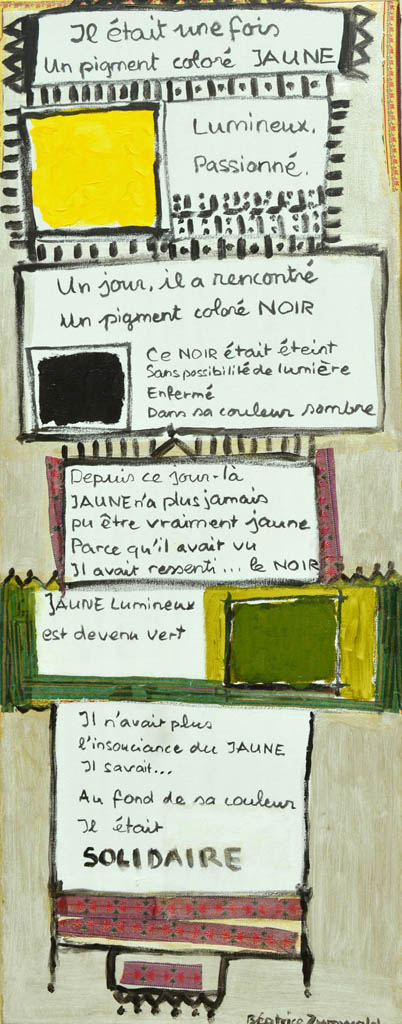 Il était une fois
Un pigment coloré JAUNE
Lumineux.
Passionné.
Un jour, il a rencontré
Un pigment coloré NOIR
Ce NOIR était éteint
Sans possibilité de lumière
Enfermé
Dans sa couleur sombre
Depuis ce jour-là
JAUNE n'a plus jamais
pu être vraiment jaune
Parce qu'il avait vu
Il avait ressenti... le NOIR
JAUNE Lumineux
est devenu vert
Il n'avait plus
l'insouciance du JAUNE
Il savait...
Au fond de sa couleur
Il était
SOLIDAIRE
Béatrice